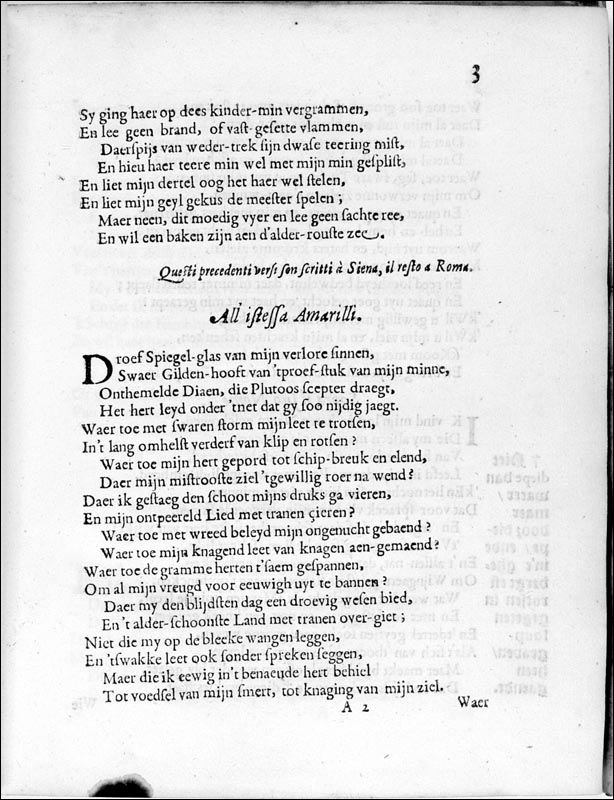 3
Sy ging haer op dees kinder-min vergrammen,
En lee geen brand, of vast-gesette vlammen,
Daerspijs van weder-trek sijn dwase teering mist,
En hieu haer teere min wel met mijn min gesplist,
En liet mijn dertel oog het haer wel stelen,
En liet mijn geyl gekus de meester spelen;
Maer neen, dit moedig vyer en lee geen sachte ree,
En wil een baken zijn aen d'alder-rouste zee.
Questi precedenti versi son scritti à Siena, il resto a Roma.
All' istessa Amarilli.
Droef Spiegel-glas van mijn verlore sinnen,
Swaer Gilden-hooft van 'tproef-stuk van mijn minne,
Onthemelde Diaen, die Plutoos scepter draegt,
Het hert leyd onder 'tnet dat gy soo nijdig jaegt.
Waer toe met swaren storm mijn leet te trotsen,
In't lang omhelst verderf van klip en rotsen?
Waer toe mijn hert gepord tot schip-breuk en elend,
Daer mijn mistrooste ziel 'tgewillig roer na wend?
Daer ik gestaeg den schoot mijns druks ga vieren,
En mijn ontpeereld Lied met tranen çieren?
Waer toe met wreed beleyd mijn ongenucht gebaend?
Waer toe mijn knagend leet van knagen aen-gemaend?
Waer toe de gramme herten t'saem gespannen,
Om al mijn vreugd voor eeuwigh uyt te bannen?
Daer my den blijdsten dag een droevig wesen bied,
En 't alder-schoonste Land met tranen over-giet;
Niet die my op de bleeke wangen leggen,
En 'tswakke leet ook sonder spreken seggen,
Maer die ik eewig in't benaeude hert behiel
Tot voedsel van mijn smert, tot knaging van mijn ziel.
A 2
Waer